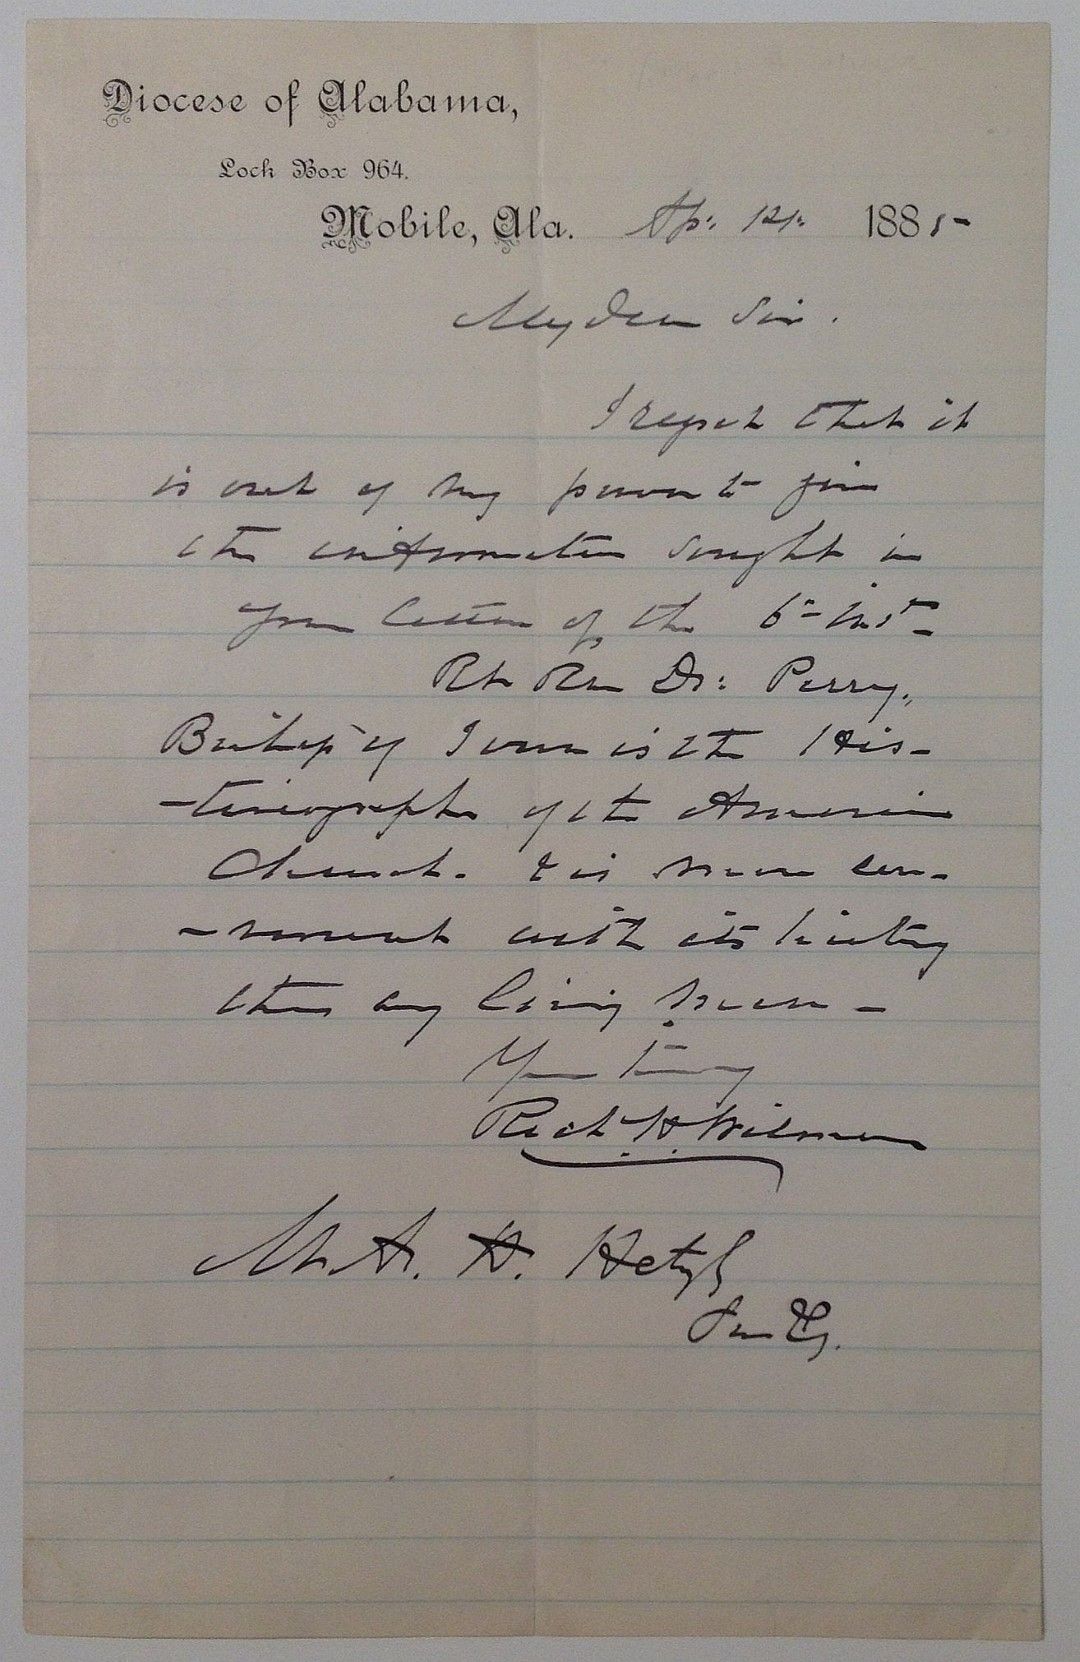 Diocese of Alabama,
Lock Box 964.
Mobile, Ala. Ap: 14: 1885
My dear Sir.
I regret that it
is out of my power to give
the information sought in
your letter of the 6th inst
Rt Rev Dr: Perry,
Bishop of Iowa is the His-
-toriographer of the American
Church. & is more con-
-versant with its history
than any living man -
Yours truly
Rich: H: Wilmer
Mr A. H. Hetzl